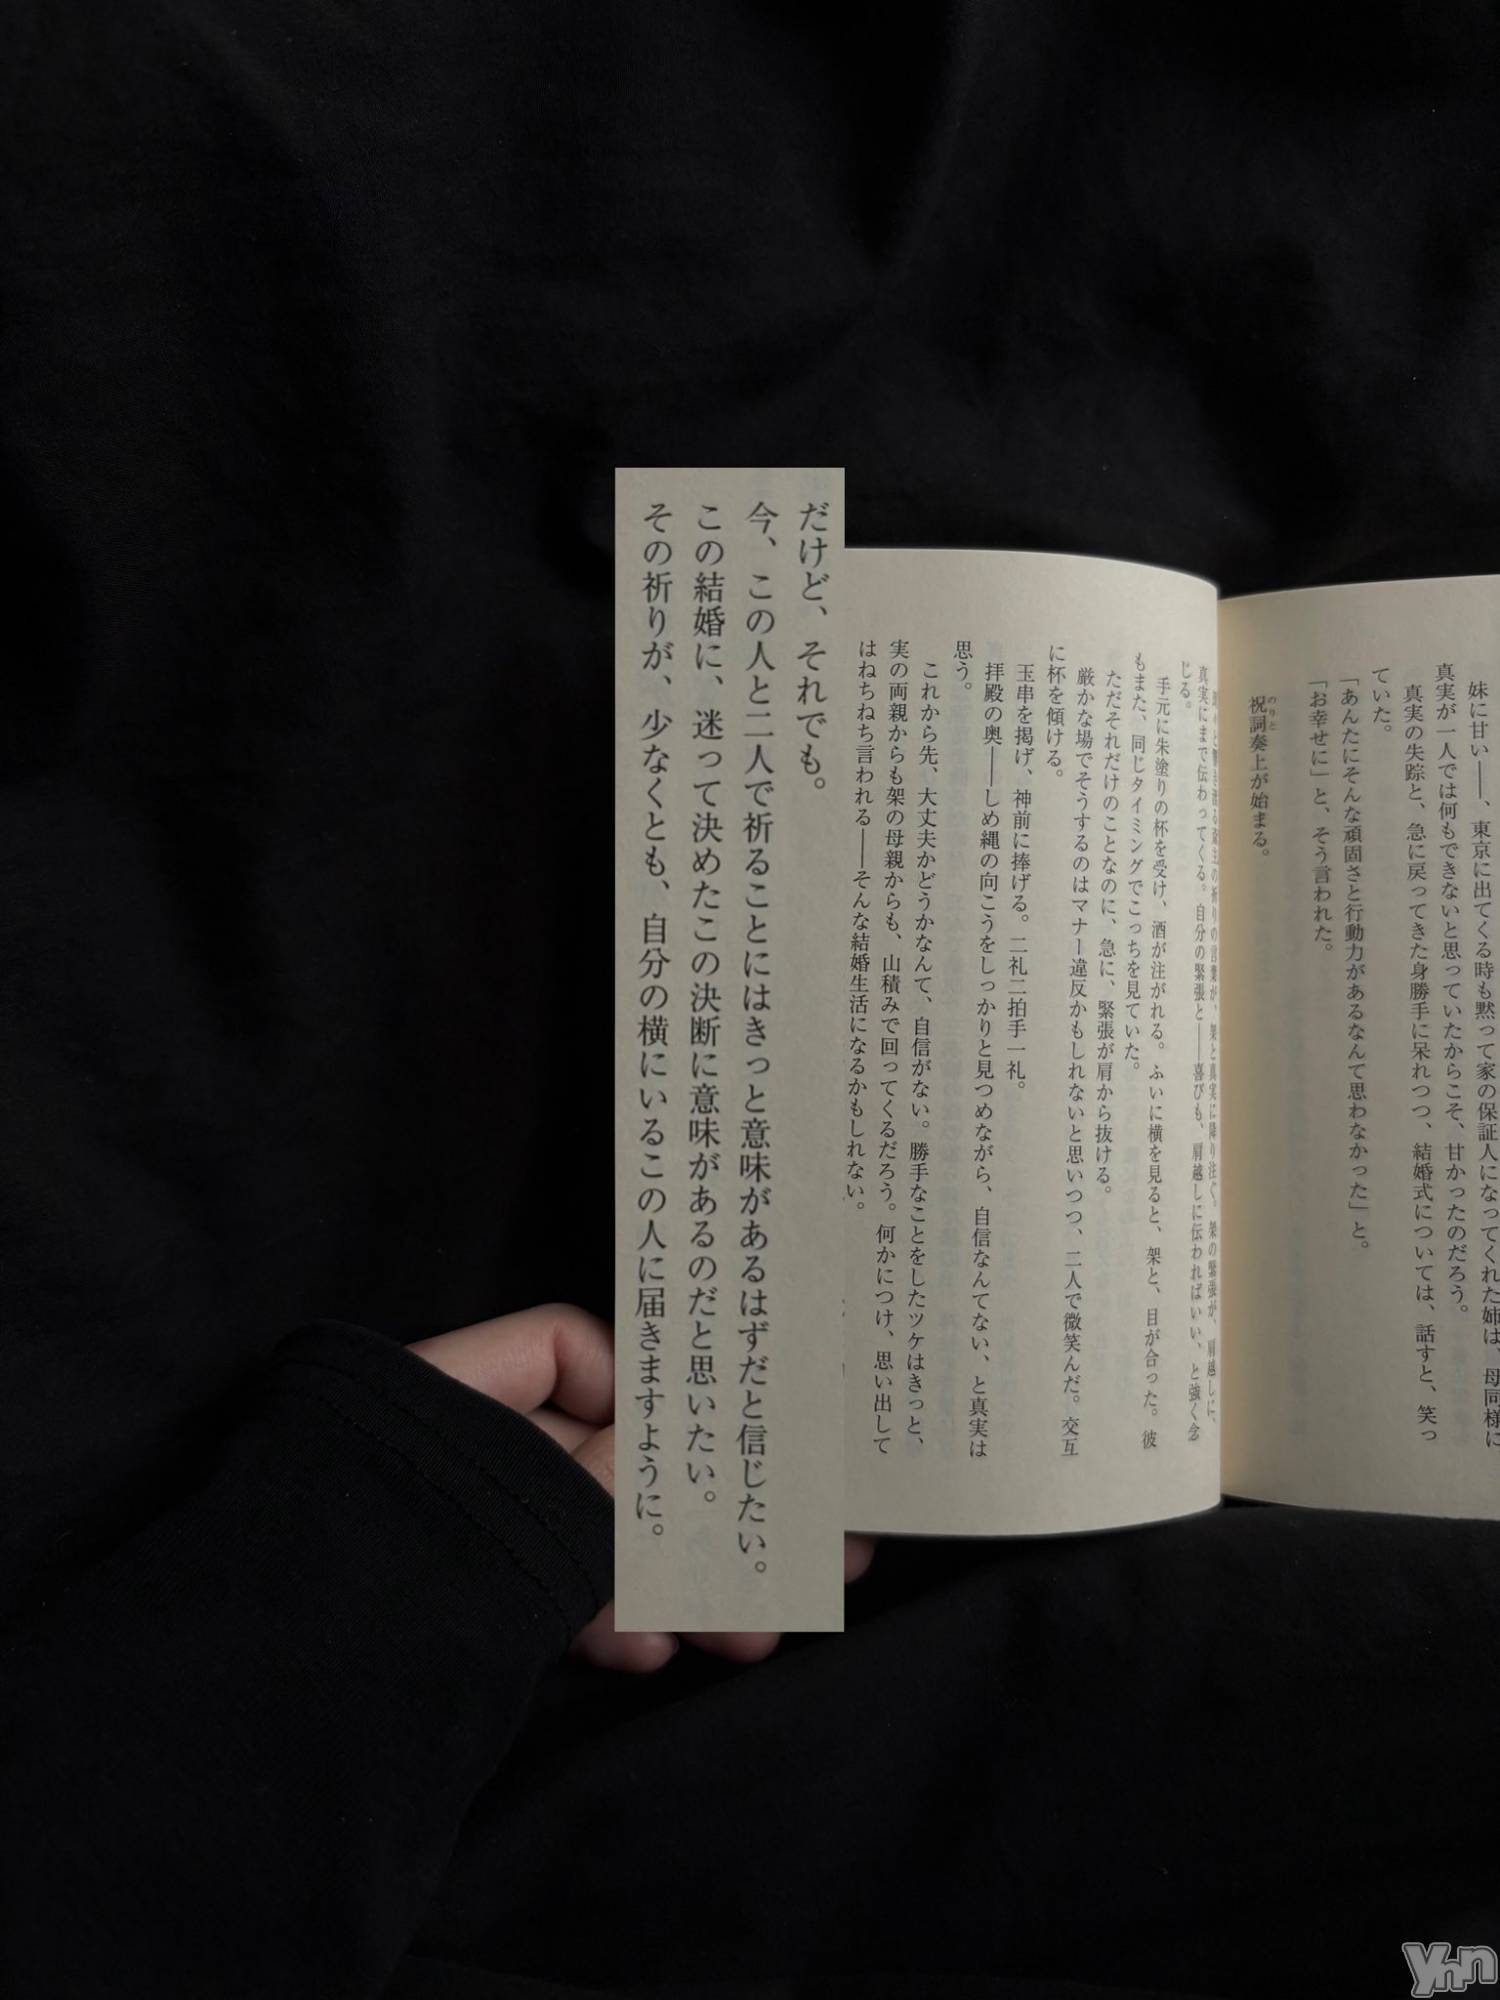 妹に甘い――、東京に出てくる時も黙って家の保証人になってくれた姉は、母同様に
真実が一人では何もできないと思っていたからこそ、甘かったのだろう。
真実の失踪と、急に戻ってきた身勝手に呆れつつ、結婚式については、話すと、笑っ
ていた。
「あんたにそんな頑固さと行動力があるなんて思わなかった」と。
「お幸せに」と、そう言われた。
祝詞奏上が始まる。
のりと
の祈りの言葉が、架と真実に降り注ぐ。架の緊張が、肩越しに、
真実にまで伝わってくる。自分の緊張と――喜びも、肩越しに伝わればいい、と強く念
じる。
手元に朱塗りの杯を受け、酒が注がれる。ふいに横を見ると、架と、目が合った。彼
もまた、同じタイミングでこっちを見ていた。
ただそれだけのことなのに、急に、緊張が肩から抜ける。
厳かな場でそうするのはマナー違反かもしれないと思いつつ、二人で微笑んだ。交互
に杯を傾ける。
玉串を掲げ、神前に捧げる。二礼二拍手一礼。
拝殿の奥――しめ縄の向こうをしっかりと見つめながら、自信なんてない、と真実は
思う。
これから先、大丈夫かどうかなんて、自信がない。勝手なことをしたツケはきっと、
実の両親からも架の母親からも、山積みで回ってくるだろう。何かにつけ、思い出して
はねちねち言われる――そんな結婚生活になるかもしれない。
だけど、それでも。
今、この人と二人で祈ることにはきっと意味があるはずだと信じたい。
この結婚に、迷って決めたこの決断に意味があるのだと思いたい。
その祈りが、少なくとも、自分の横にいるこの人に届きますように。
Ynn